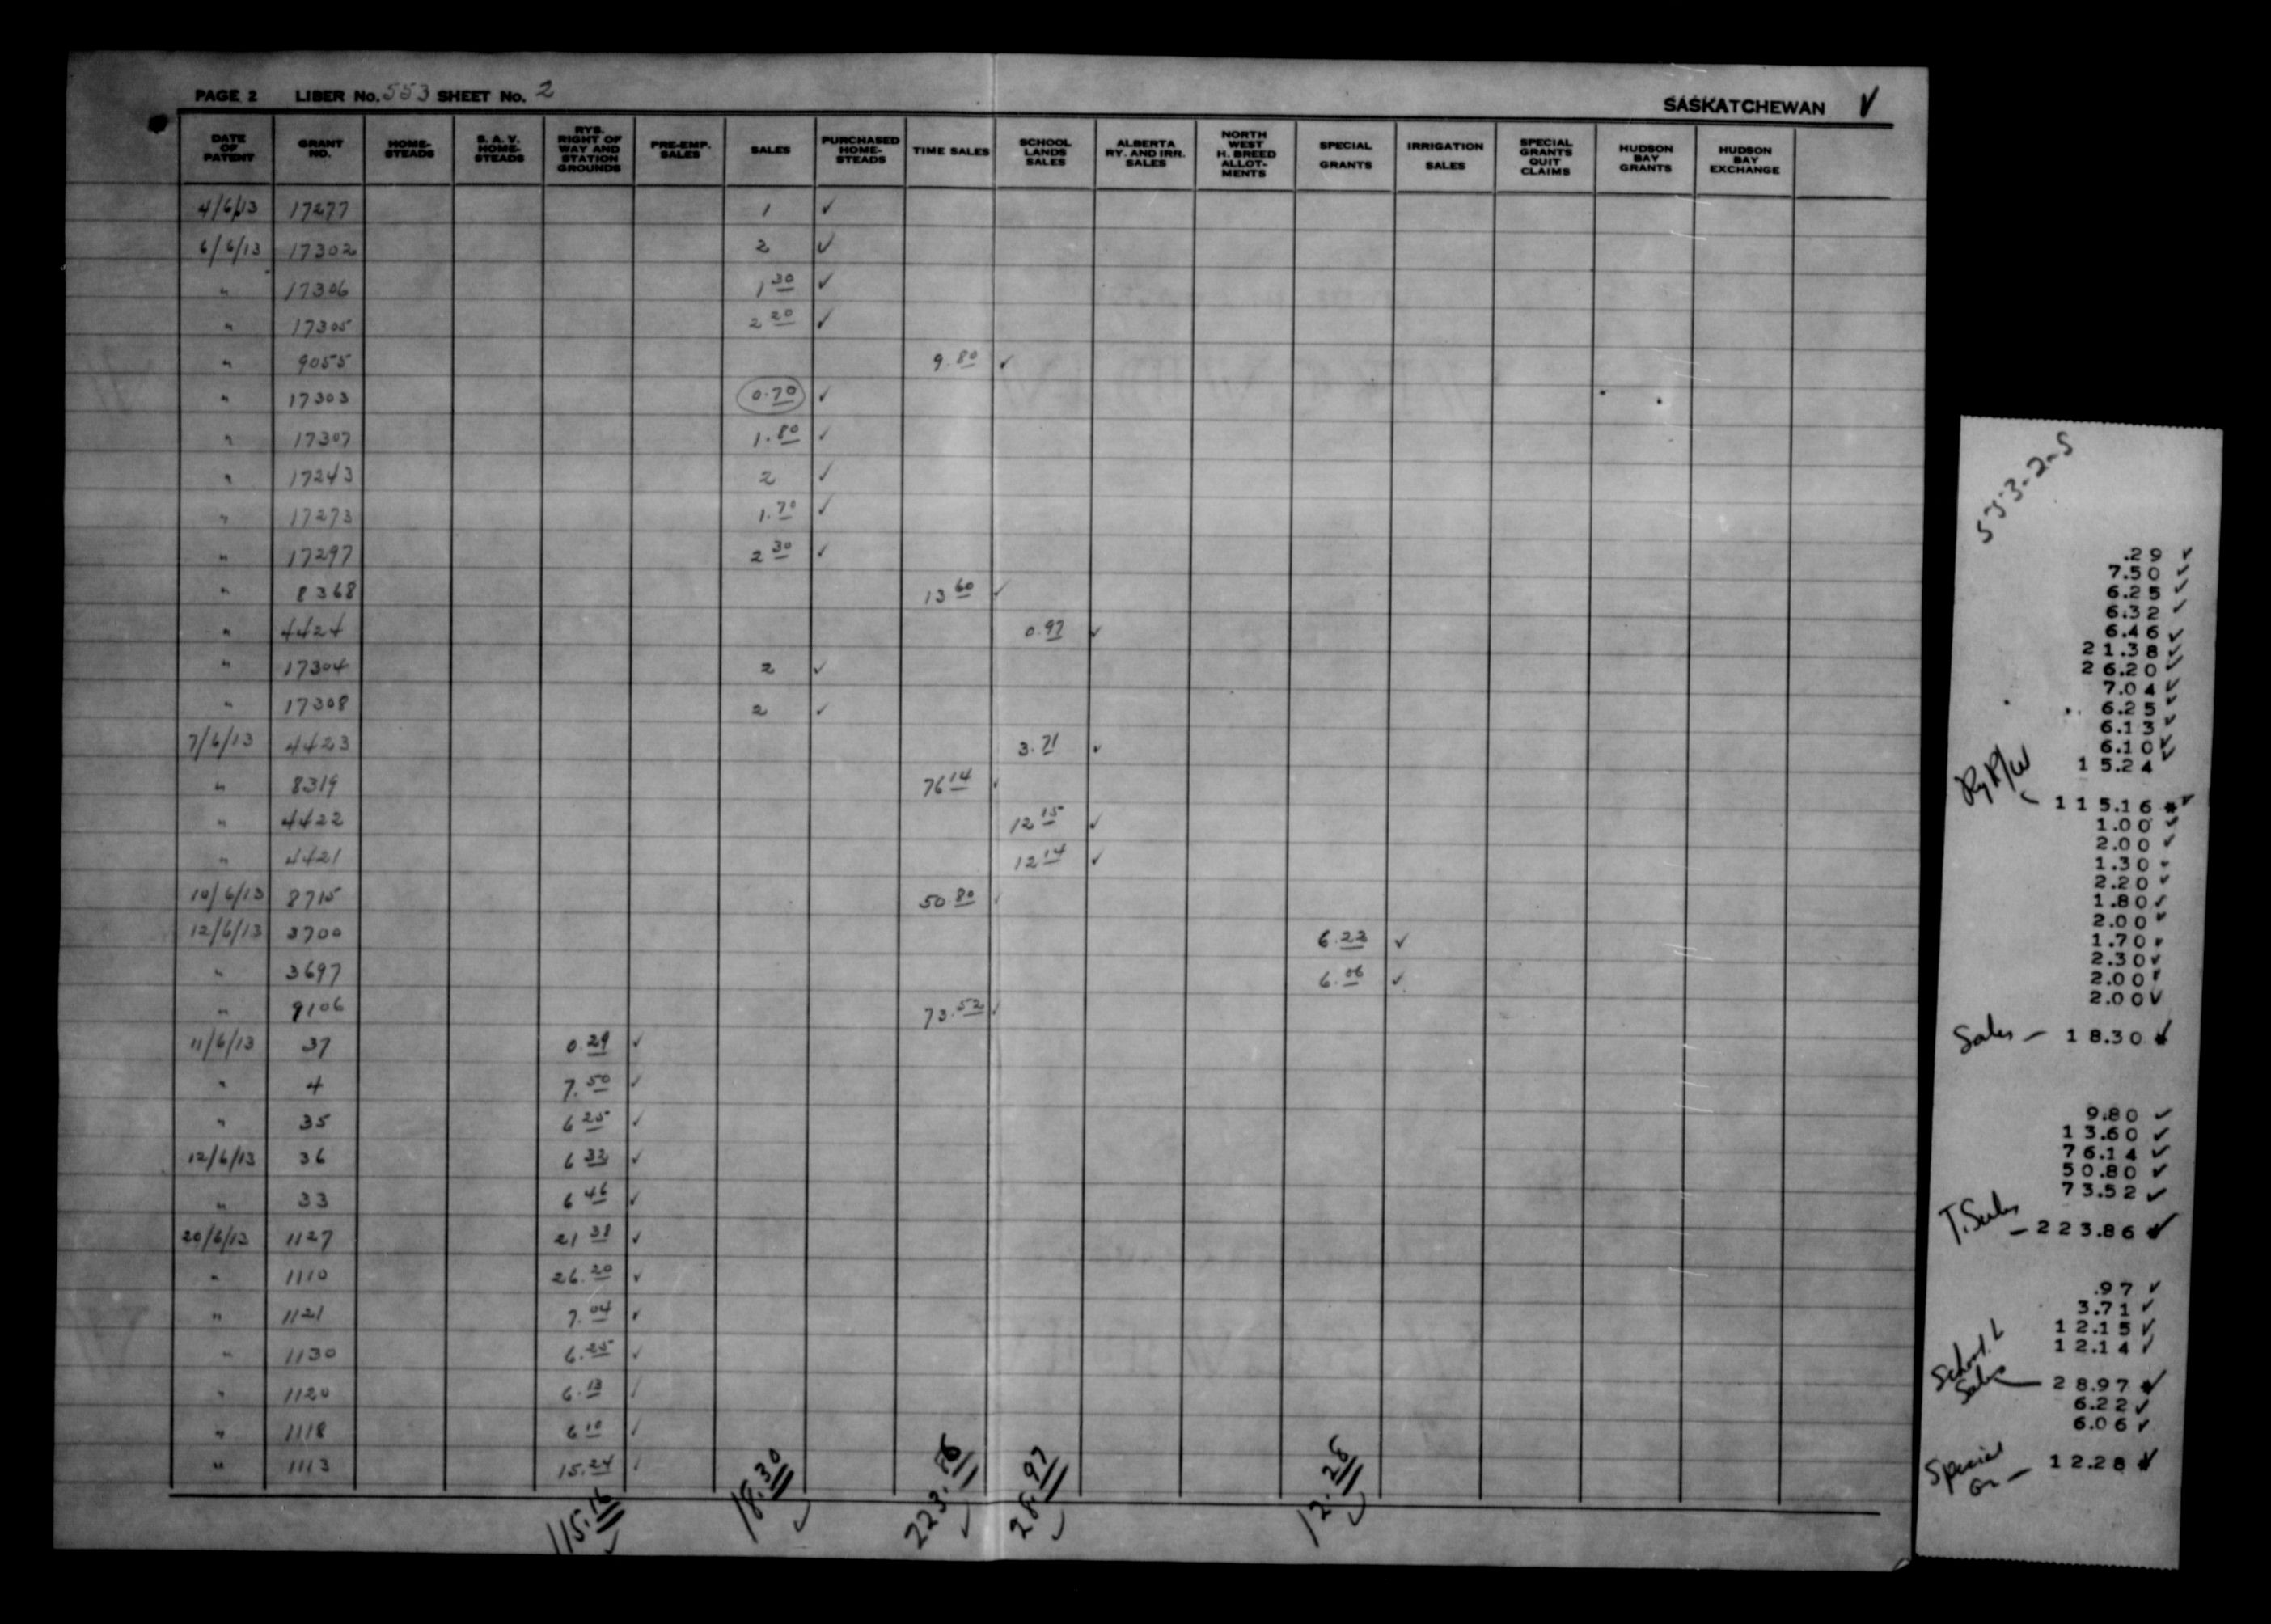 PAGE 2 LIBER No. 553 SHEET No. 2 SASKATCHEWAN ✓
DATE OF PATENT GRANT NO. HOME-STEADS S. A. V. HOME-STEADS RYS. RIGHT OF WAY AND STATION GROUNDS PRE-EMP. SALES SALES PURCHASED HOME-STEADS TIME SALES SCHOOL LANDS SALES ALBERTA RY. AND IRR. SALES NORTH WEST H. BREED ALLOT-MENTS SPECIAL GRANTS IRRIGATION SALES SPECIAL GRANTS QUIT CLAIMS HUDSON BAY GRANTS HUDSON BAY EXCHANGE
4/6/13 17277 1 ✓
6/6/13 17302 2 ✓
" 17306 1 30 ✓
" 17305 2 20 ✓
" 9055 9.80 ✓
" 17303 0.70 ✓
" 17307 1.80 ✓
" 17243 2 ✓
" 17273 1.70 ✓
" 17297 2 30 ✓
" 8368 13 60 ✓
" 4424 0.97 ✓
" 17304 2 ✓
" 17308 2 ✓
7/6/13 4423 3.71 ✓
" 8319 76 14 ✓
" 4422 12 15 ✓
" 4421 12 14 ✓
10/6/13 8715 50 80 ✓
12/6/13 3700 6.22 ✓
" 3697 6.06 ✓
" 9106 73.52 ✓
11/6/13 37 0.29 ✓
" 4 7.50 ✓
" 35 6 25 ✓
12/6/13 36 6 32 ✓
" 33 6 46 ✓
20/6/13 1127 21 38 ✓
" 1110 26.20 ✓
" 1121 7.04 ✓
" 1130 6.25 ✓
" 1120 6.13 ✓
" 1118 6 10 ✓
" 1113 15.24 ✓
115.16 ✓ 18.30 ✓ 223.86 ✓ 28.97 ✓ 12.28 ✓
553-2-S
.29 ✓
7.50 ✓
6.25 ✓
6.32 ✓
6.46 ✓
21.38 ✓
26.20 ✓
7.04 ✓
6.25 ✓
6.13 ✓
6.10 ✓
15.24 ✓
Ry R/W - 115.16 * ✓
1.00 ✓
2.00 ✓
1.30 ✓
2.20 ✓
1.80 ✓
2.00 ✓
1.70 ✓
2.30 ✓
2.00 ✓
2.00 ✓
Sales - 18.30 * ✓
9.80 ✓
13.60 ✓
76.14 ✓
50.80 ✓
73.52 ✓
T. Sales - 223.86 * ✓
.97 ✓
3.71 ✓
12.15 ✓
12.14 ✓
School L Sales - 28.97 * ✓
6.22 ✓
6.06 ✓
Special Gr - 12.28 * ✓